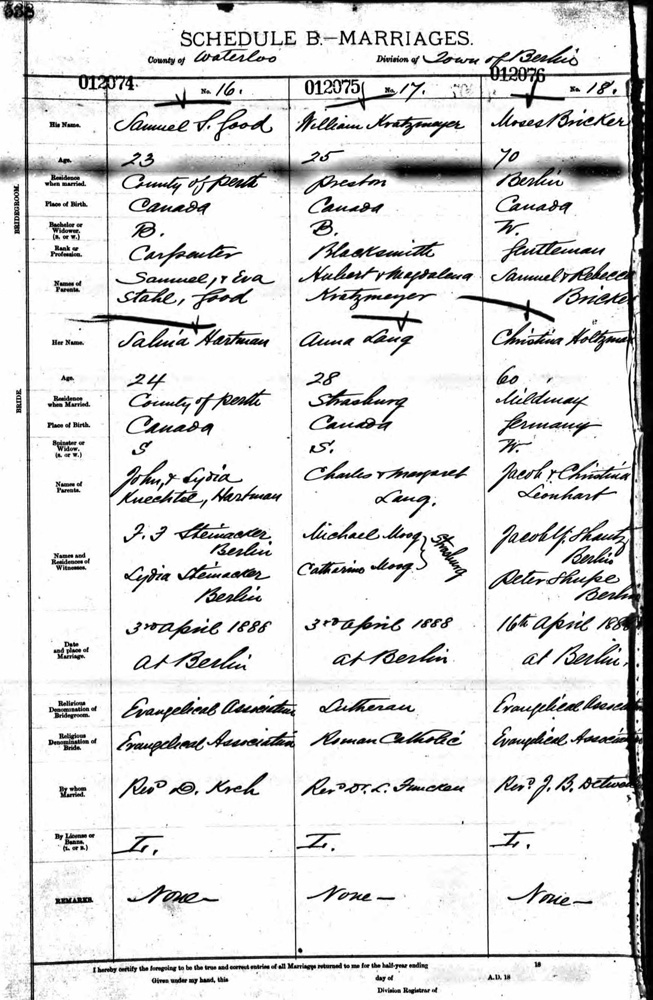 338
SCHEDULE B.—MARRIAGES.
County of Waterloo Division of Town of Berlin
012074 No. 16. 012075 No. 17. 012076 No. 18.
BRIDEGROOM.
His Name. Samuel S. Good William Kratzmeyer Moses Bricker
Age. 23 25 70
Residence when married. County of Perth Preston Berlin
Place of Birth. Canada Canada Canada
Bachelor or Widower. (B. or W.) B. B. W.
Rank or Profession. Carpenter Blacksmith Gentleman
Names of Parents. Samuel, & Eva Hubert & Magdalena Samuel & Rebecca
Stahl, Good Kratzmeyer Bricker
BRIDE.
Her Name. Salina Hartman Anna Lang Christina Holtzman
Age. 24 28 60
Residence when Married. County of Perth Strasburg Mildmay
Place of Birth. Canada Canada Germany
Spinster or Widow. (S. or W.) S S. W.
Names of Parents. John, & Lydia Charles & Margaret Jacob & Christina
Knechtel, Hartman Lang. Leonhart
Names and Residences of Witnesses. F. F Steinacker Michael Moog Jacob Y. Shantz
Berlin Strasburg Berlin
Lydia Steinacker Catharine Moog Peter Shupe
Berlin Berlin
Date and place of Marriage. 3rd April 1888 3rd April 1888 16th April 188
at Berlin at Berlin at Berlin.
Religious Denomination of Bridegroom. Evangelical Association Lutheran Evangelical Associa
Religious Denomination of Bride. Evangelical Association Roman Catholic Evangelical Associa
By whom Married. Revd D. Revd Dr. L. Funcken Revd J. B. Detwe
By License or Banns. (L. or B.) L. L. L.
REMARKS. None— None— None—
I hereby certify the foregoing to be the true and correct entries of all Marriages returned to me for the half-year ending 18
Given under my hand, this day of A.D. 18
Division Registrar of